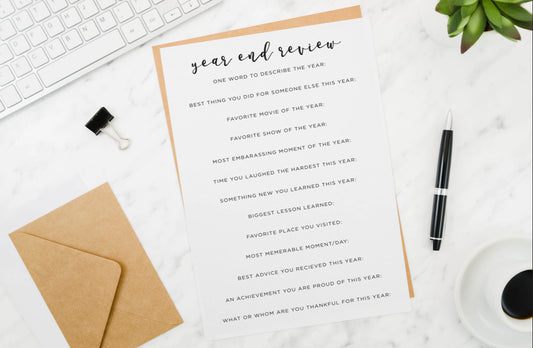 year end review
ONE WORD TO DESCRIBE THE YEAR:
BEST THING YOU DID FOR SOMEONE ELSE THIS YEAR:
FAVORITE MOVIE OF THE YEAR:
FAVORITE SHOW OF THE YEAR:
MOST EMBARASSING MOMENT OF THE YEAR:
TIME YOU LAUGHED THE HARDEST THIS YEAR:
SOMETHING NEW YOU LEARNED THIS YEAR:
BIGGEST LESSON LEARNED:
FAVORITE PLACE YOU VISITED:
MOST MEMERABLE MOMENT/DAY:
BEST ADVICE YOU RECIEVED THIS YEAR:
AN ACHIEVEMENT YOU ARE PROUD OF THIS YEAR:
WHAT OR WHOM ARE YOU THANKFUL FOR THIS YEAR: